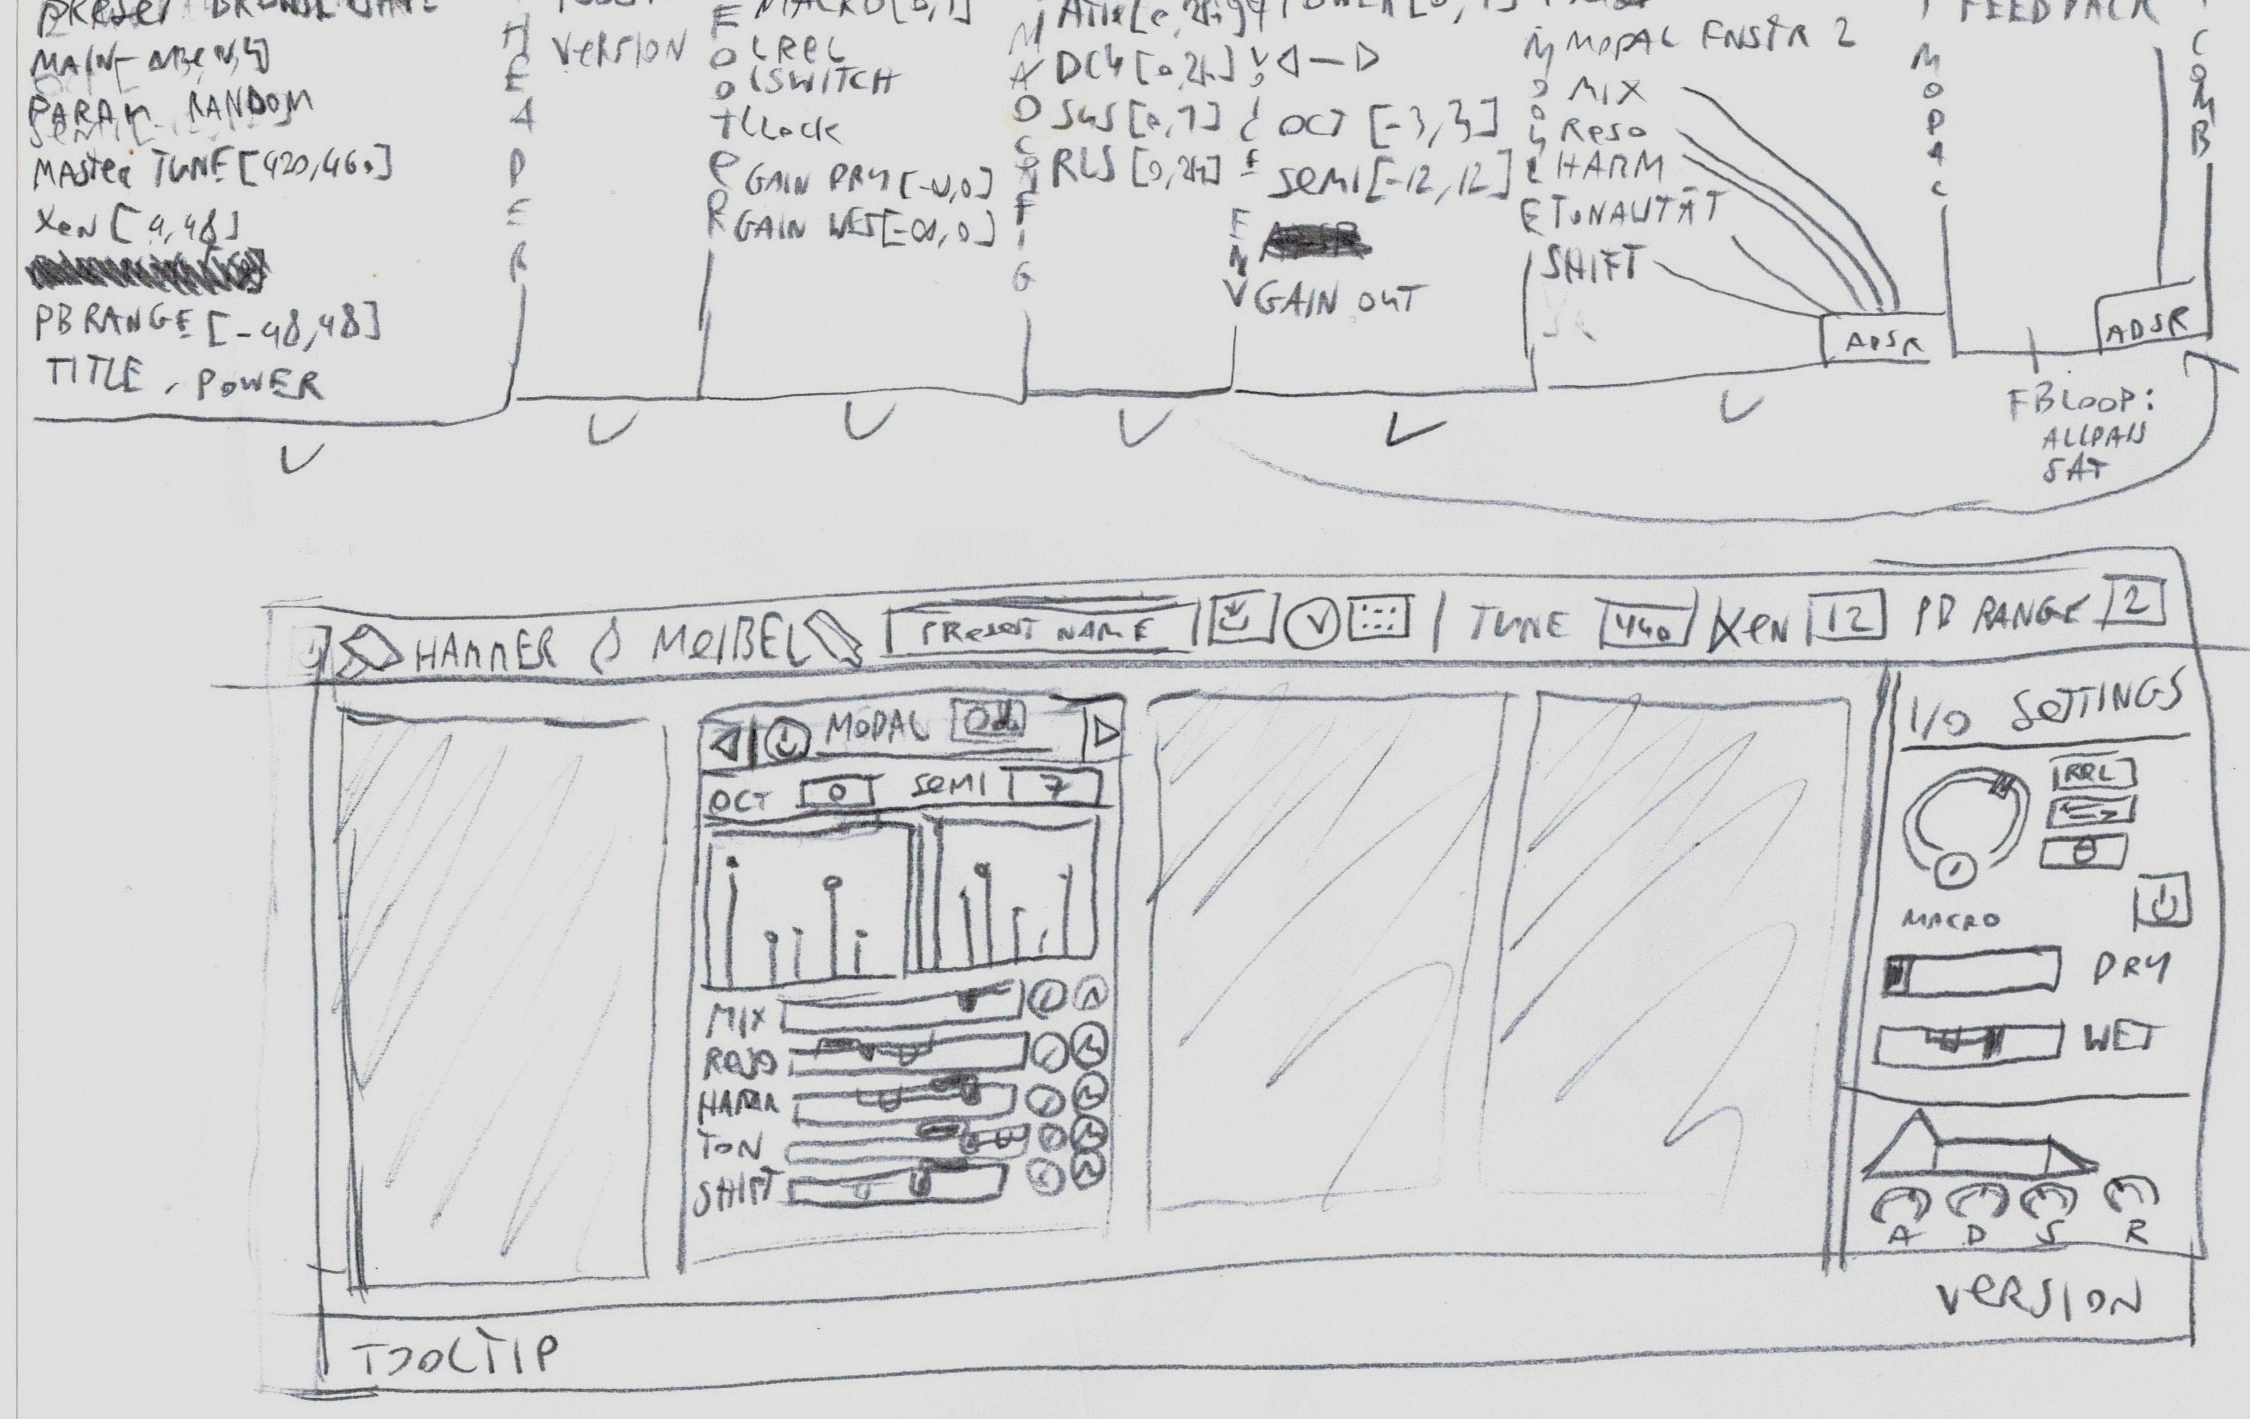 MAIN-
PARAM RANDOM
MASTER TUNE [420,460]
XEN [4,48]
PB RANGE [-48,48]
TITLE, POWER
HEADER
VERSION
FOOTER
MACRO [0,1]
LREL
LSWITCH
LLOCK
GAIN DRY [-∞,0]
GAIN WET [-∞,0]
DCY [0,2k]
SUS [0,1]
RLS [0,2k]
POWER [0,1]
◁ — ▷
OCT [-3,3]
SEMI [-12,12]
GAIN OUT
MODAL FNSTR 2
MIX
RESO
HARM
TONALITÄT
SHIFT
ADSR
MODAL
FEEDBACK
COMB
ADSR
FB LOOP:
ALLPASS
SAT
HAMMER & MEIßEL
PRESET NAME
TUNE 440
XEN 12
PB RANGE 2
MODAL
OCT 0 SEMI 7
MIX
RESO
HARM
TON
SHIFT
I/O SETTINGS
REL
MACRO
DRY
WET
A D S R
VERSION
TOOLTIP